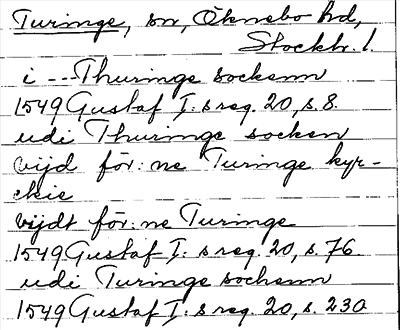 Turinge, sn, Öknebo hd,
Stockh. l.
i -- Thuringe sockenn
1549 Gustaf I: s reg. 20, s. 8.
udi Thuringe socken
vijd för: ne Turinge kyr-
ckie
vijdt för: ne Turinge
1549 Gustaf I: s reg. 20, s. 76
udi Turinge sockenn
1549 Gustaf I: s reg. 20, s. 230